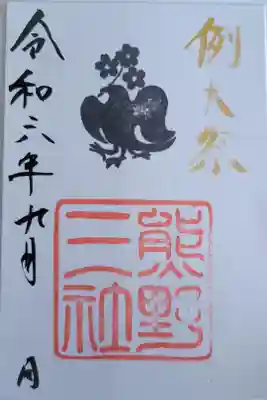 例大祭
熊野
三社
令和六年九月
月